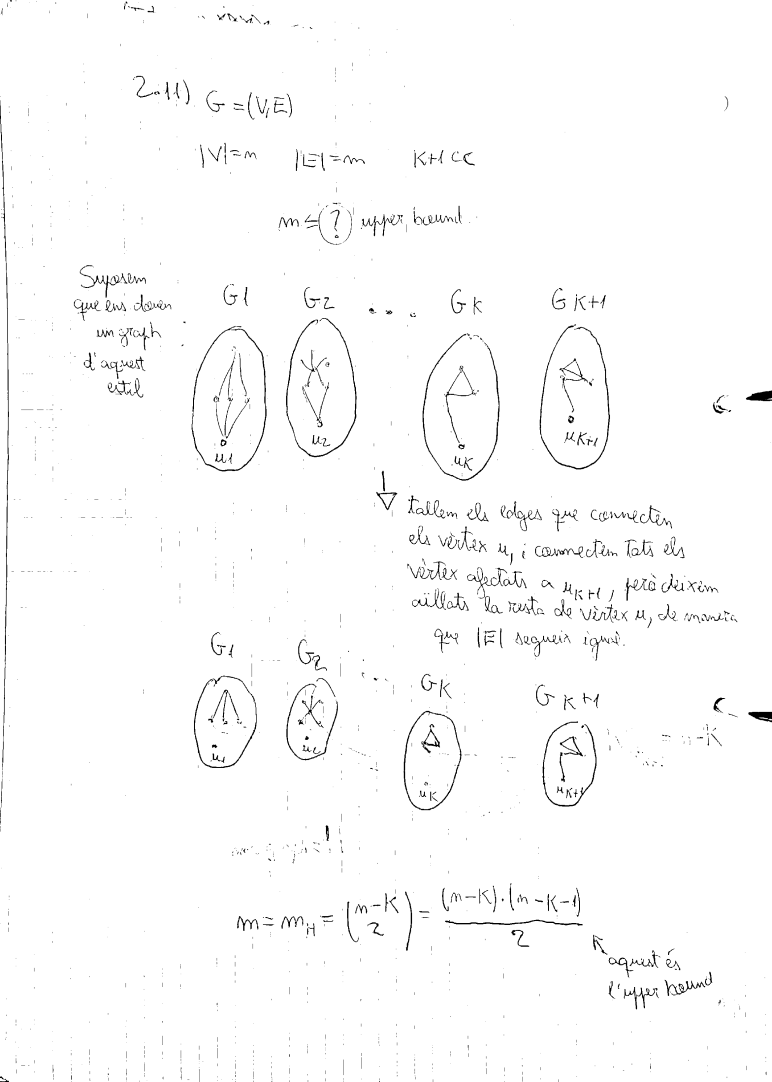 2.11) G = (V,E)
|V|=n |E|=m K+1 CC
m ≤ ? upper bound.
Suposem
que ens donen
un graph
d'aquest
estil
G1 G2 ... GK GK+1
u1 u2 uK uK+1
tallem els edges que connecten
els vèrtex u, i connectem tots els
vèrtex afectats a uK+1, però deixem
aïllats la resta de vèrtex u, de manera
que |E| segueix igual.
G1 G2 ... GK GK+1
u1 u2 uK uK+1
= n-K
m = mH = (n-K 2) = (n-K)·(n-K-1) / 2
aquest és
l'upper bound